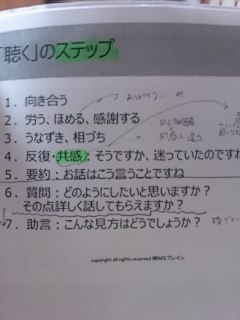 「聴く」のステップ
1. 向き合う
2. 労う、ほめる、感謝する
3. うなずき、相づち
4. 反復・共感：そうですか、迷っていたのですね
5. 要約：お話はこう言うことですね
6. 質問：どのようにしたいと思いますか？
その点詳しく話してもらえますか？
7. 助言：こんな見方はどうでしょうか？
copyright all rights reserved